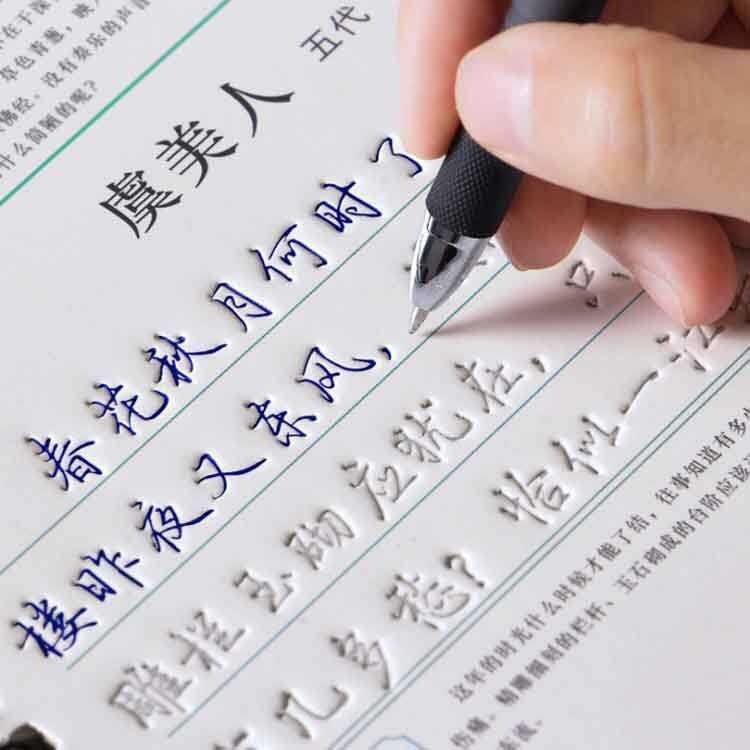 在于深
草色青葱，映入
佛经。没有奏乐的声音
什么简陋的呢？
虞美人 五代
春花秋月何时了
楼昨夜又东风，
雕栏玉砌应犹在，只
几多愁？恰似一江
这年的时光什么时候才能了结，往事知道有多少
伤痛。精雕细刻的栏杆、玉石砌成的台阶应该还
流。